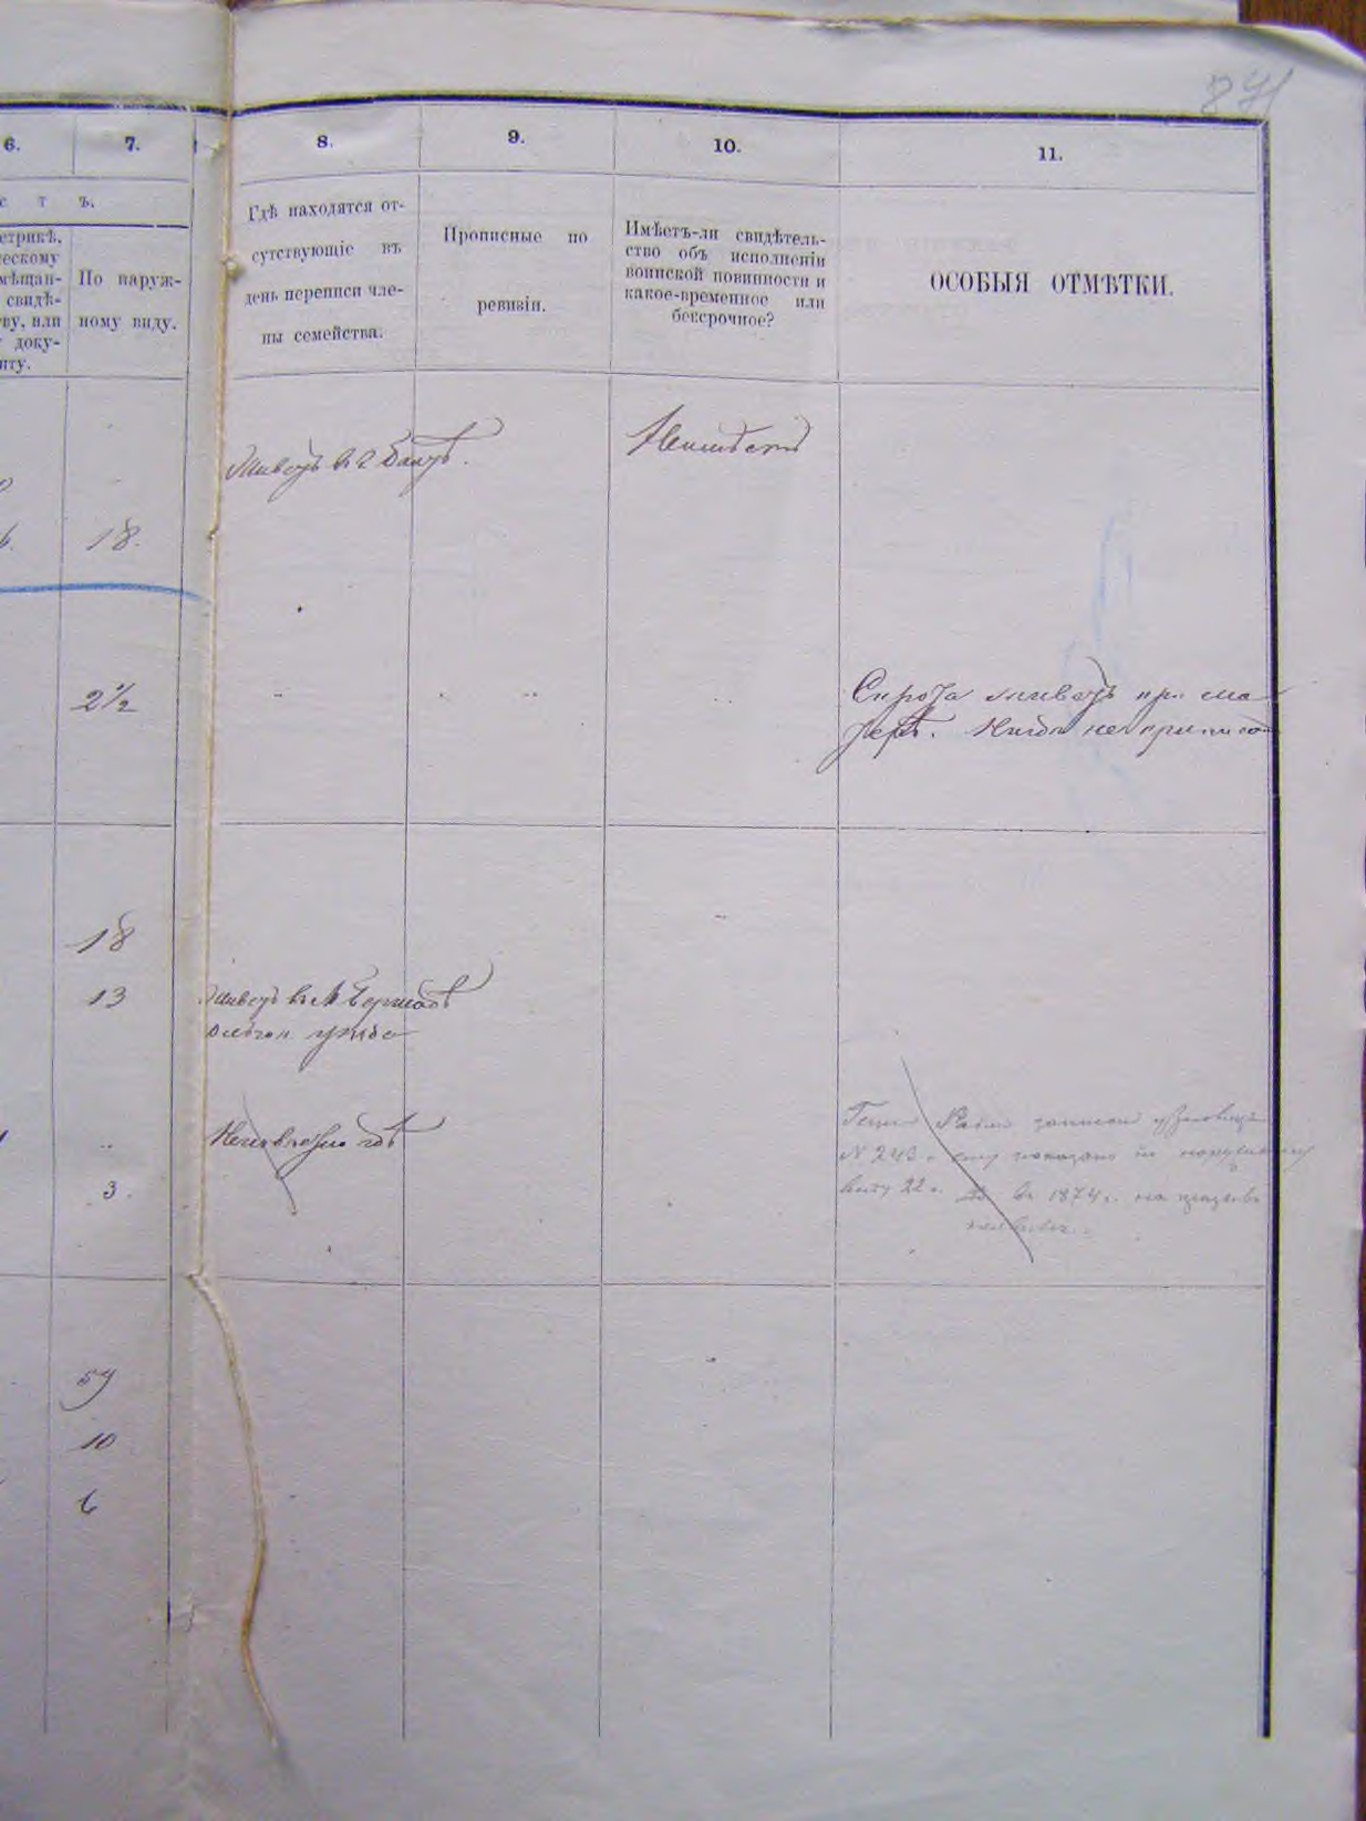 84
6.
7.
8.
9.
10.
11.
с т ъ.
етрикѣ,
ческому
мѣщан-
свидѣ-
тву, или
доку-
нту.
По наруж-
ному виду.
Гдѣ находятся от-
сутствующіе въ
день переписи чле-
ны семейства.
Прописные по
ревизіи.
Имѣетъ-ли свидѣтель-
ство объ исполненіи
воинской повинности и
какое-временное или
безсрочное?
ОСОБЫЯ ОТМѢТКИ.
Живетъ въ г Балтѣ.
18.
2 1/2
Сирота живетъ при ма
терѣ. Нигде не приписан
18
13
Живетъ въ М Бершадѣ
уѣзда
Неизвестно где
3.
записан
№ 243. ему показано по наружному
виду 22 г. въ 1874 г. на
59
10
6